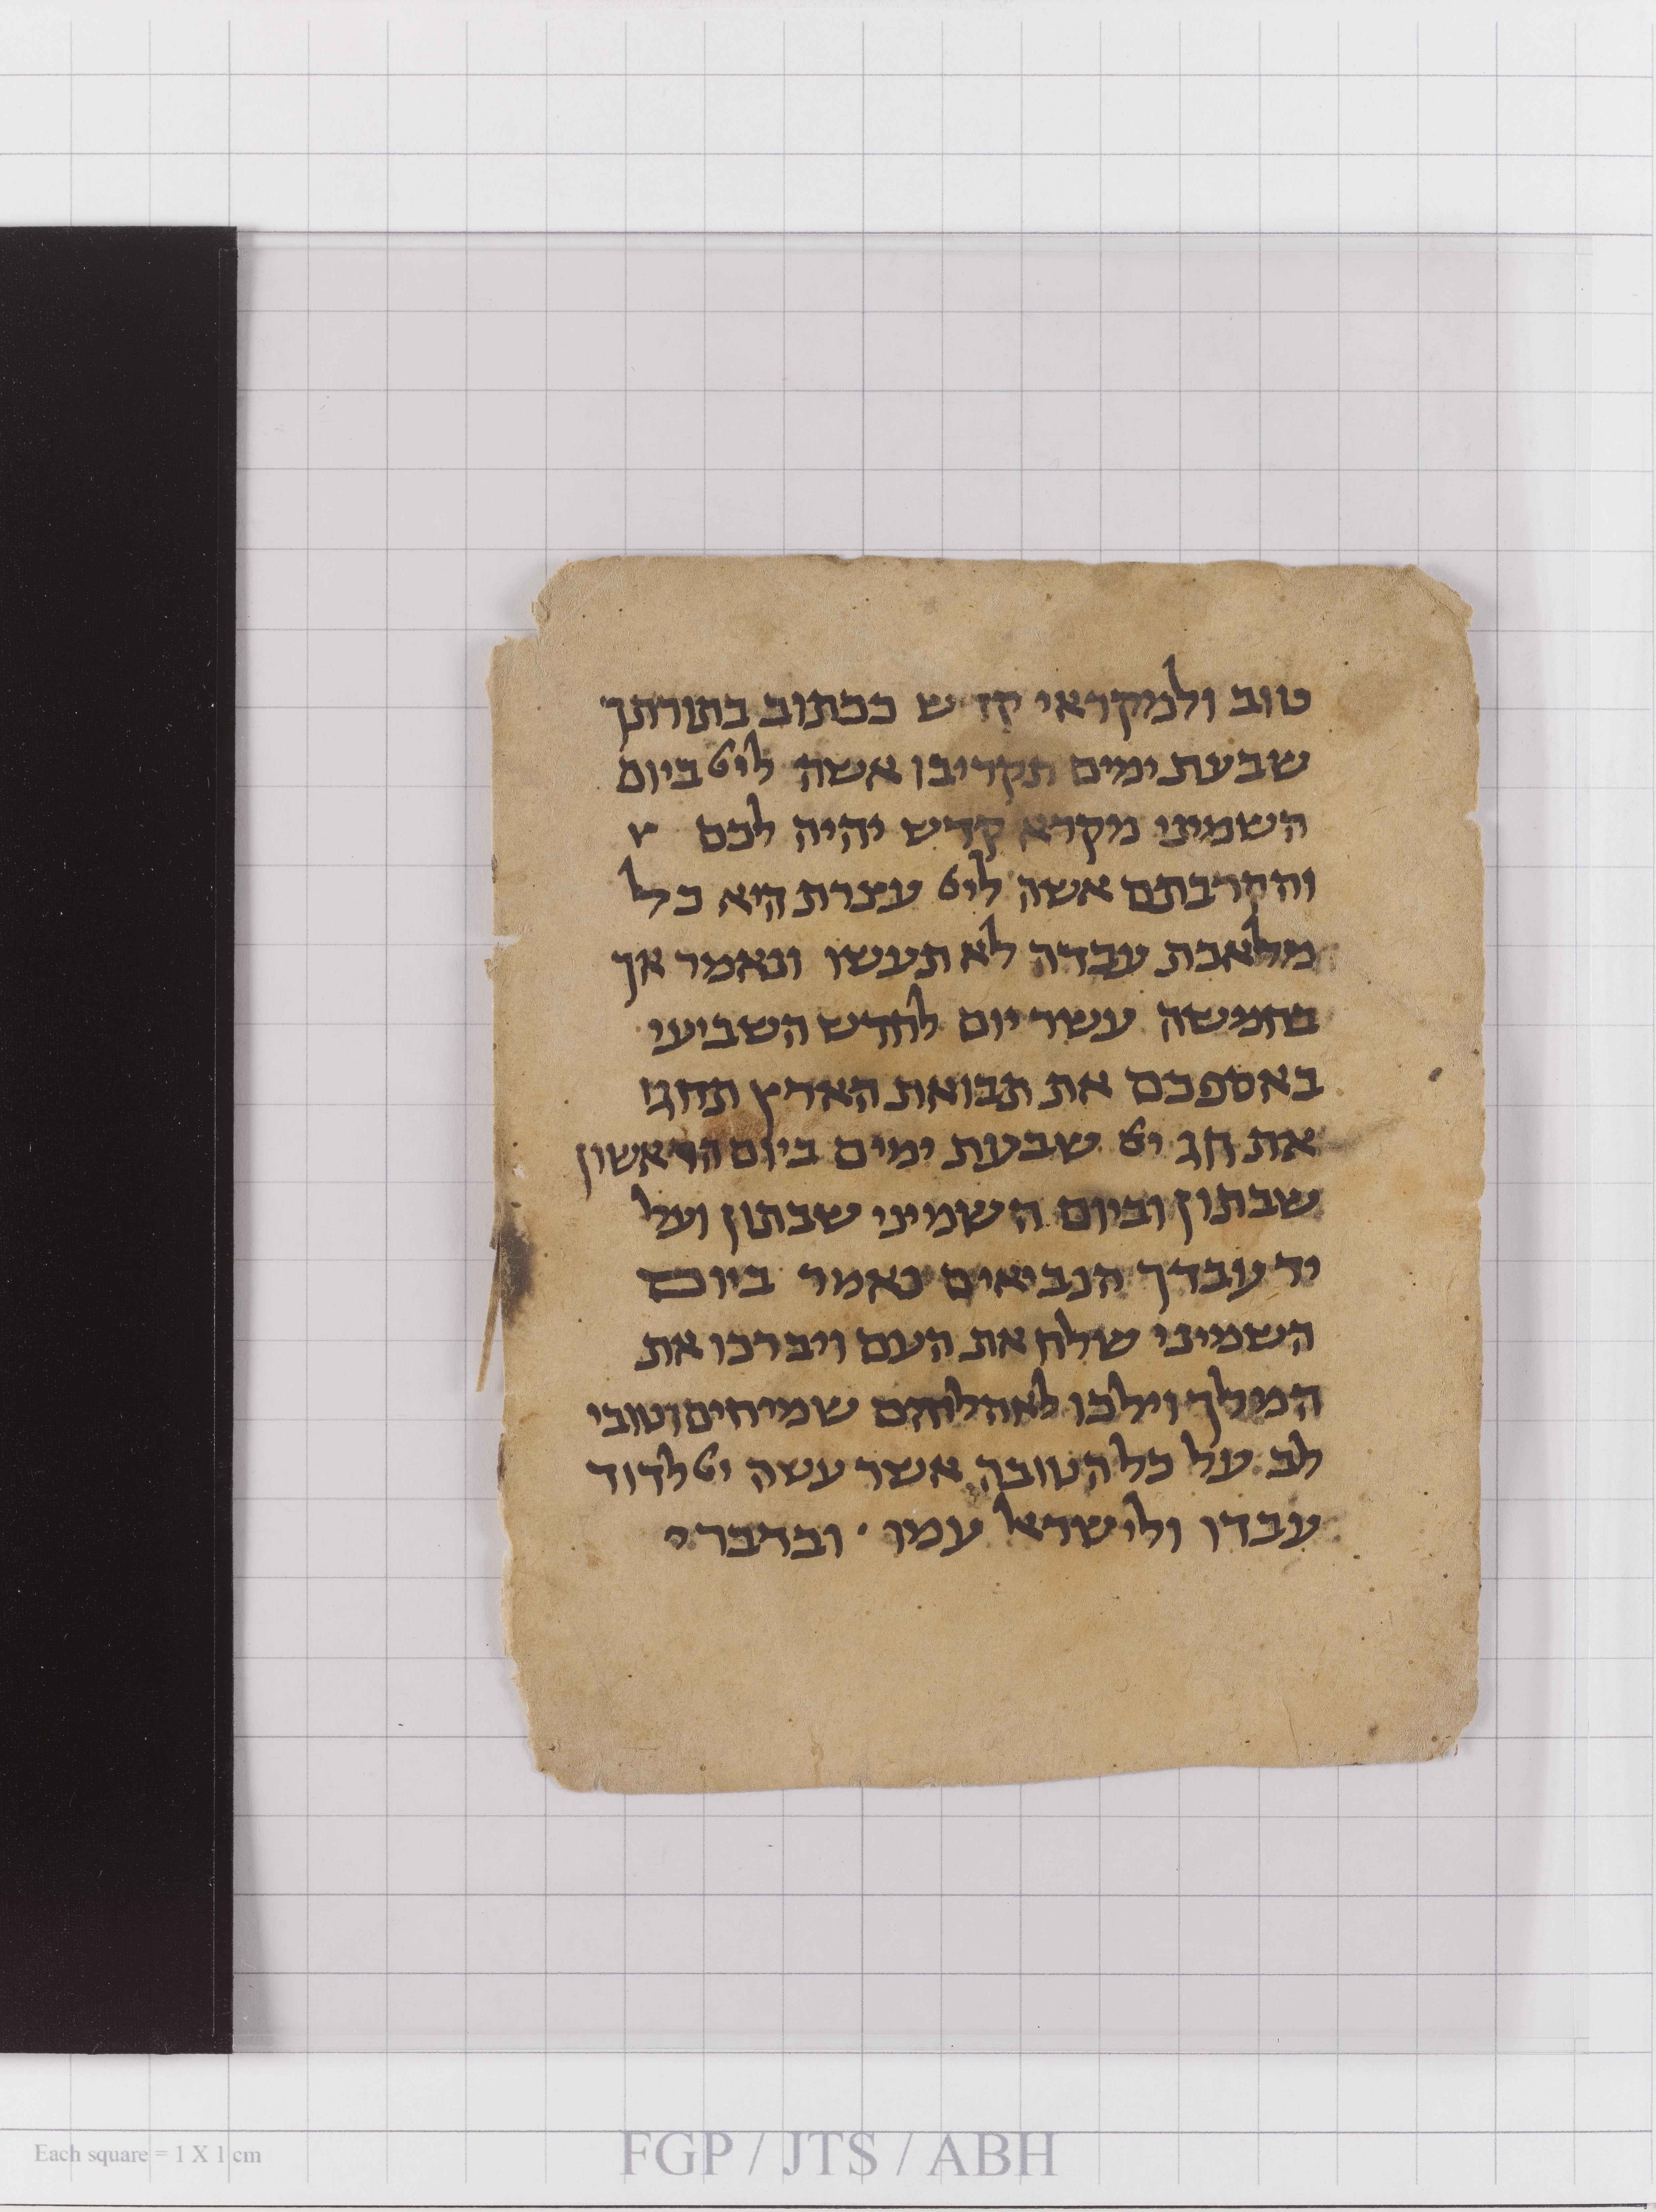 טוב ולמקראי קדש ככתוב בתורתך
שבעת ימים תקריבו אשה ליט ביום
השמיני מקרא קדש יהיה לכם
והקרבתם אשה ליט עצרת היא כל
מלאכת עבדה לא תעשו ונאמר אך
בחמשה עשר יום לחדש השביעי
באספכם את תבואת הארץ תחגו
את חג יט שבעת ימים ביום הראשון
שבתון וביום השמיני שבתון ועל
יד עבדך הנביאים נאמר ביום
השמיני שולח את העם ויברכו את
המלך וילכו לאהליהם שמיחים וטובי
לב על כל הטובה אשר עשה יט לדוד
עבדו ולישראל עמו · ובדברי
Each square = 1 X 1 cm
FGP / JTS / ABH